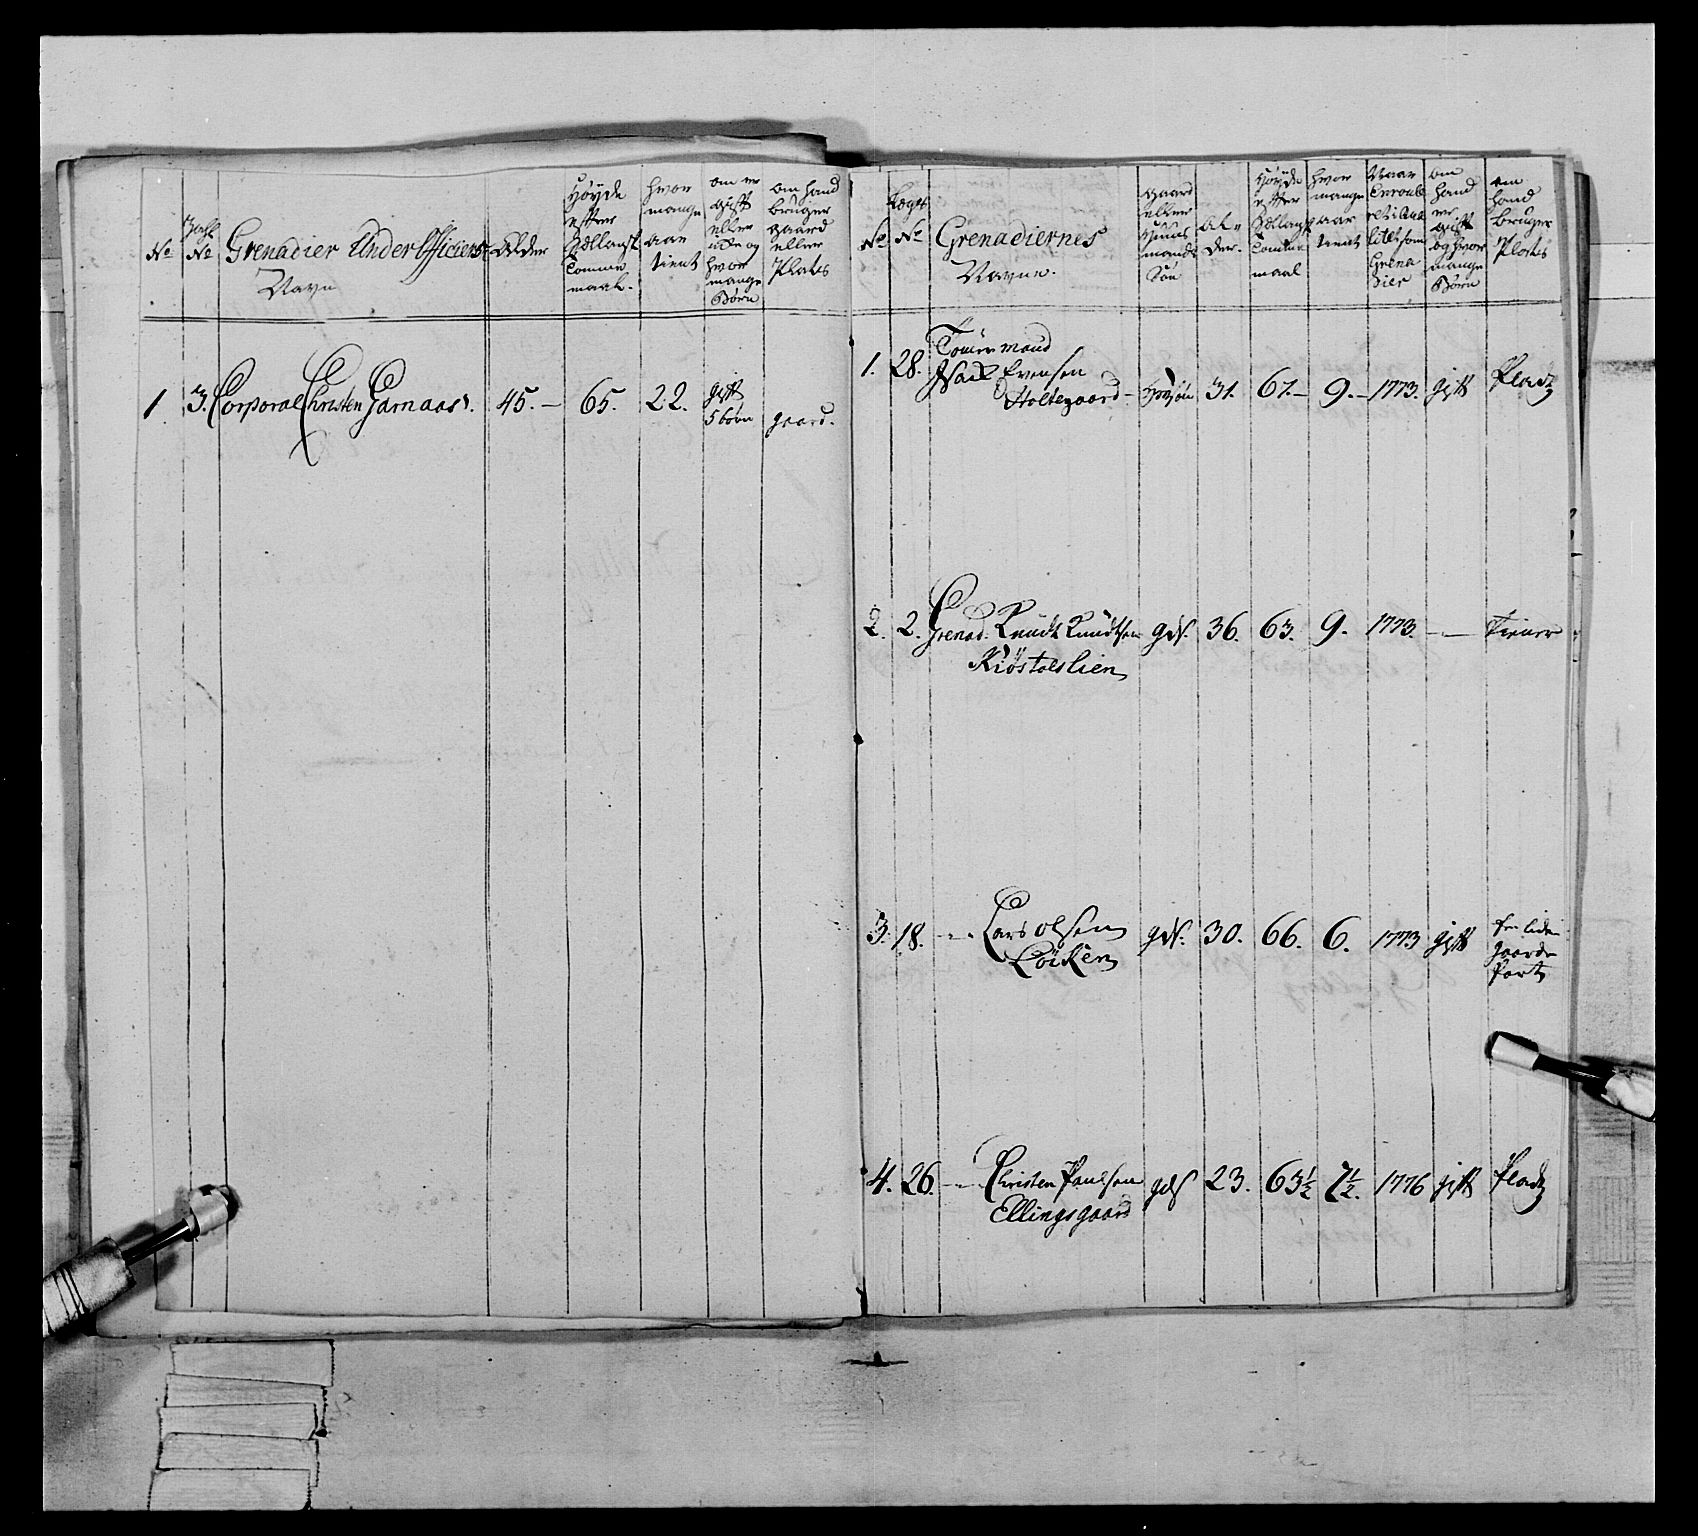 No
No
Grenadier UnderOfficiers
Navn
Alder
Høyde
efter
Sællansk
Tomme
maal.
hvor
mange
aar
tient
om er
gift
eller
ude og
hvor
mange
Børn
om hand
bruger
gaard
eller
Plads
1
3.
Corporal Christen Garnaas.
45.—
65.
22.
gift
5 børn
gaard.
Lægs
No
No
Grenadiernes
Navne.
gaard
eller
huus
mands
Søn
Al-
der.
Høyde
efter
Sællansk
Tomme
maal
hvor
mange
aar
tient
Naar
som
Grena
dier
om
hand
er
gift
og hvor
mange
Børn
om
hand
bruger
Plads
1.
28.
Tømermand
Isack Evensen
Holtegaard
31.
67.—
9.—
1773.
gift
Pladz
2.
2.
Grenad. Knudt Knudtsen
Kiøstolslien
gds.
36.
63.
9.
1773.
——
Tiener
3.
18.
-"- Lars Olsen
Løiken
gds.
30.
66.
6.
1773
gift
En liden
gaarde
Part
4.
26.
-"- Christen Paulsen
Ellingsgaard
gds
23.
63½
7½.
1776
gift
Pladz